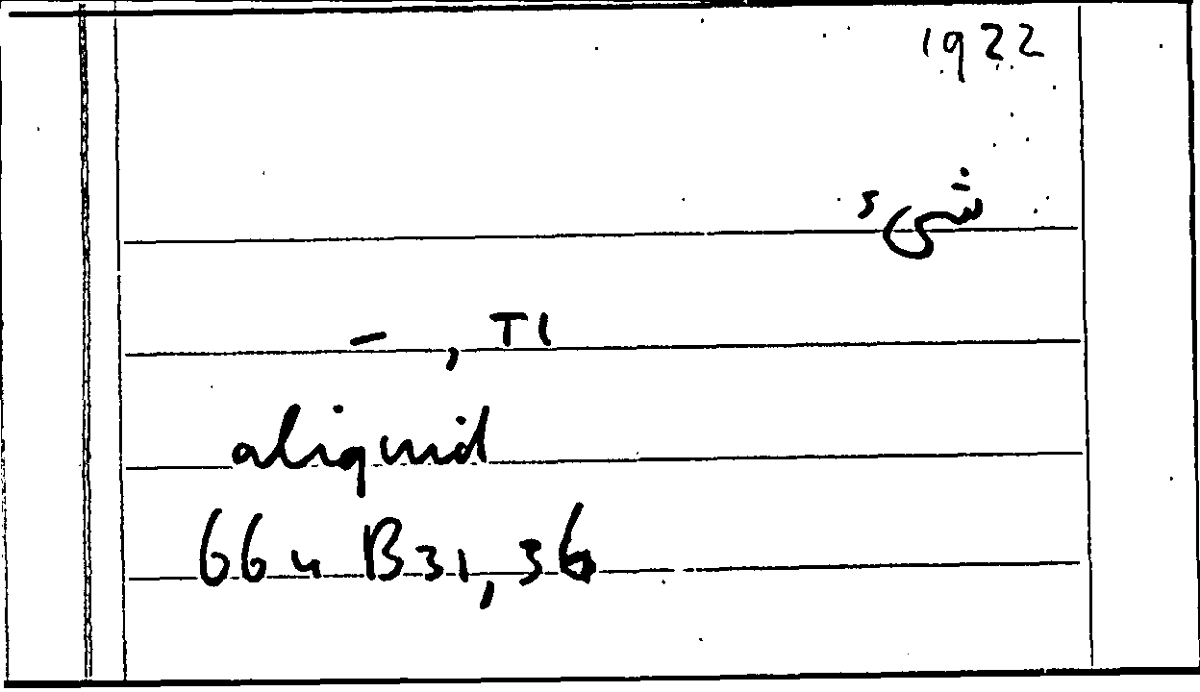 1922
شىء
–, TI
aliquid
664 B31, 36